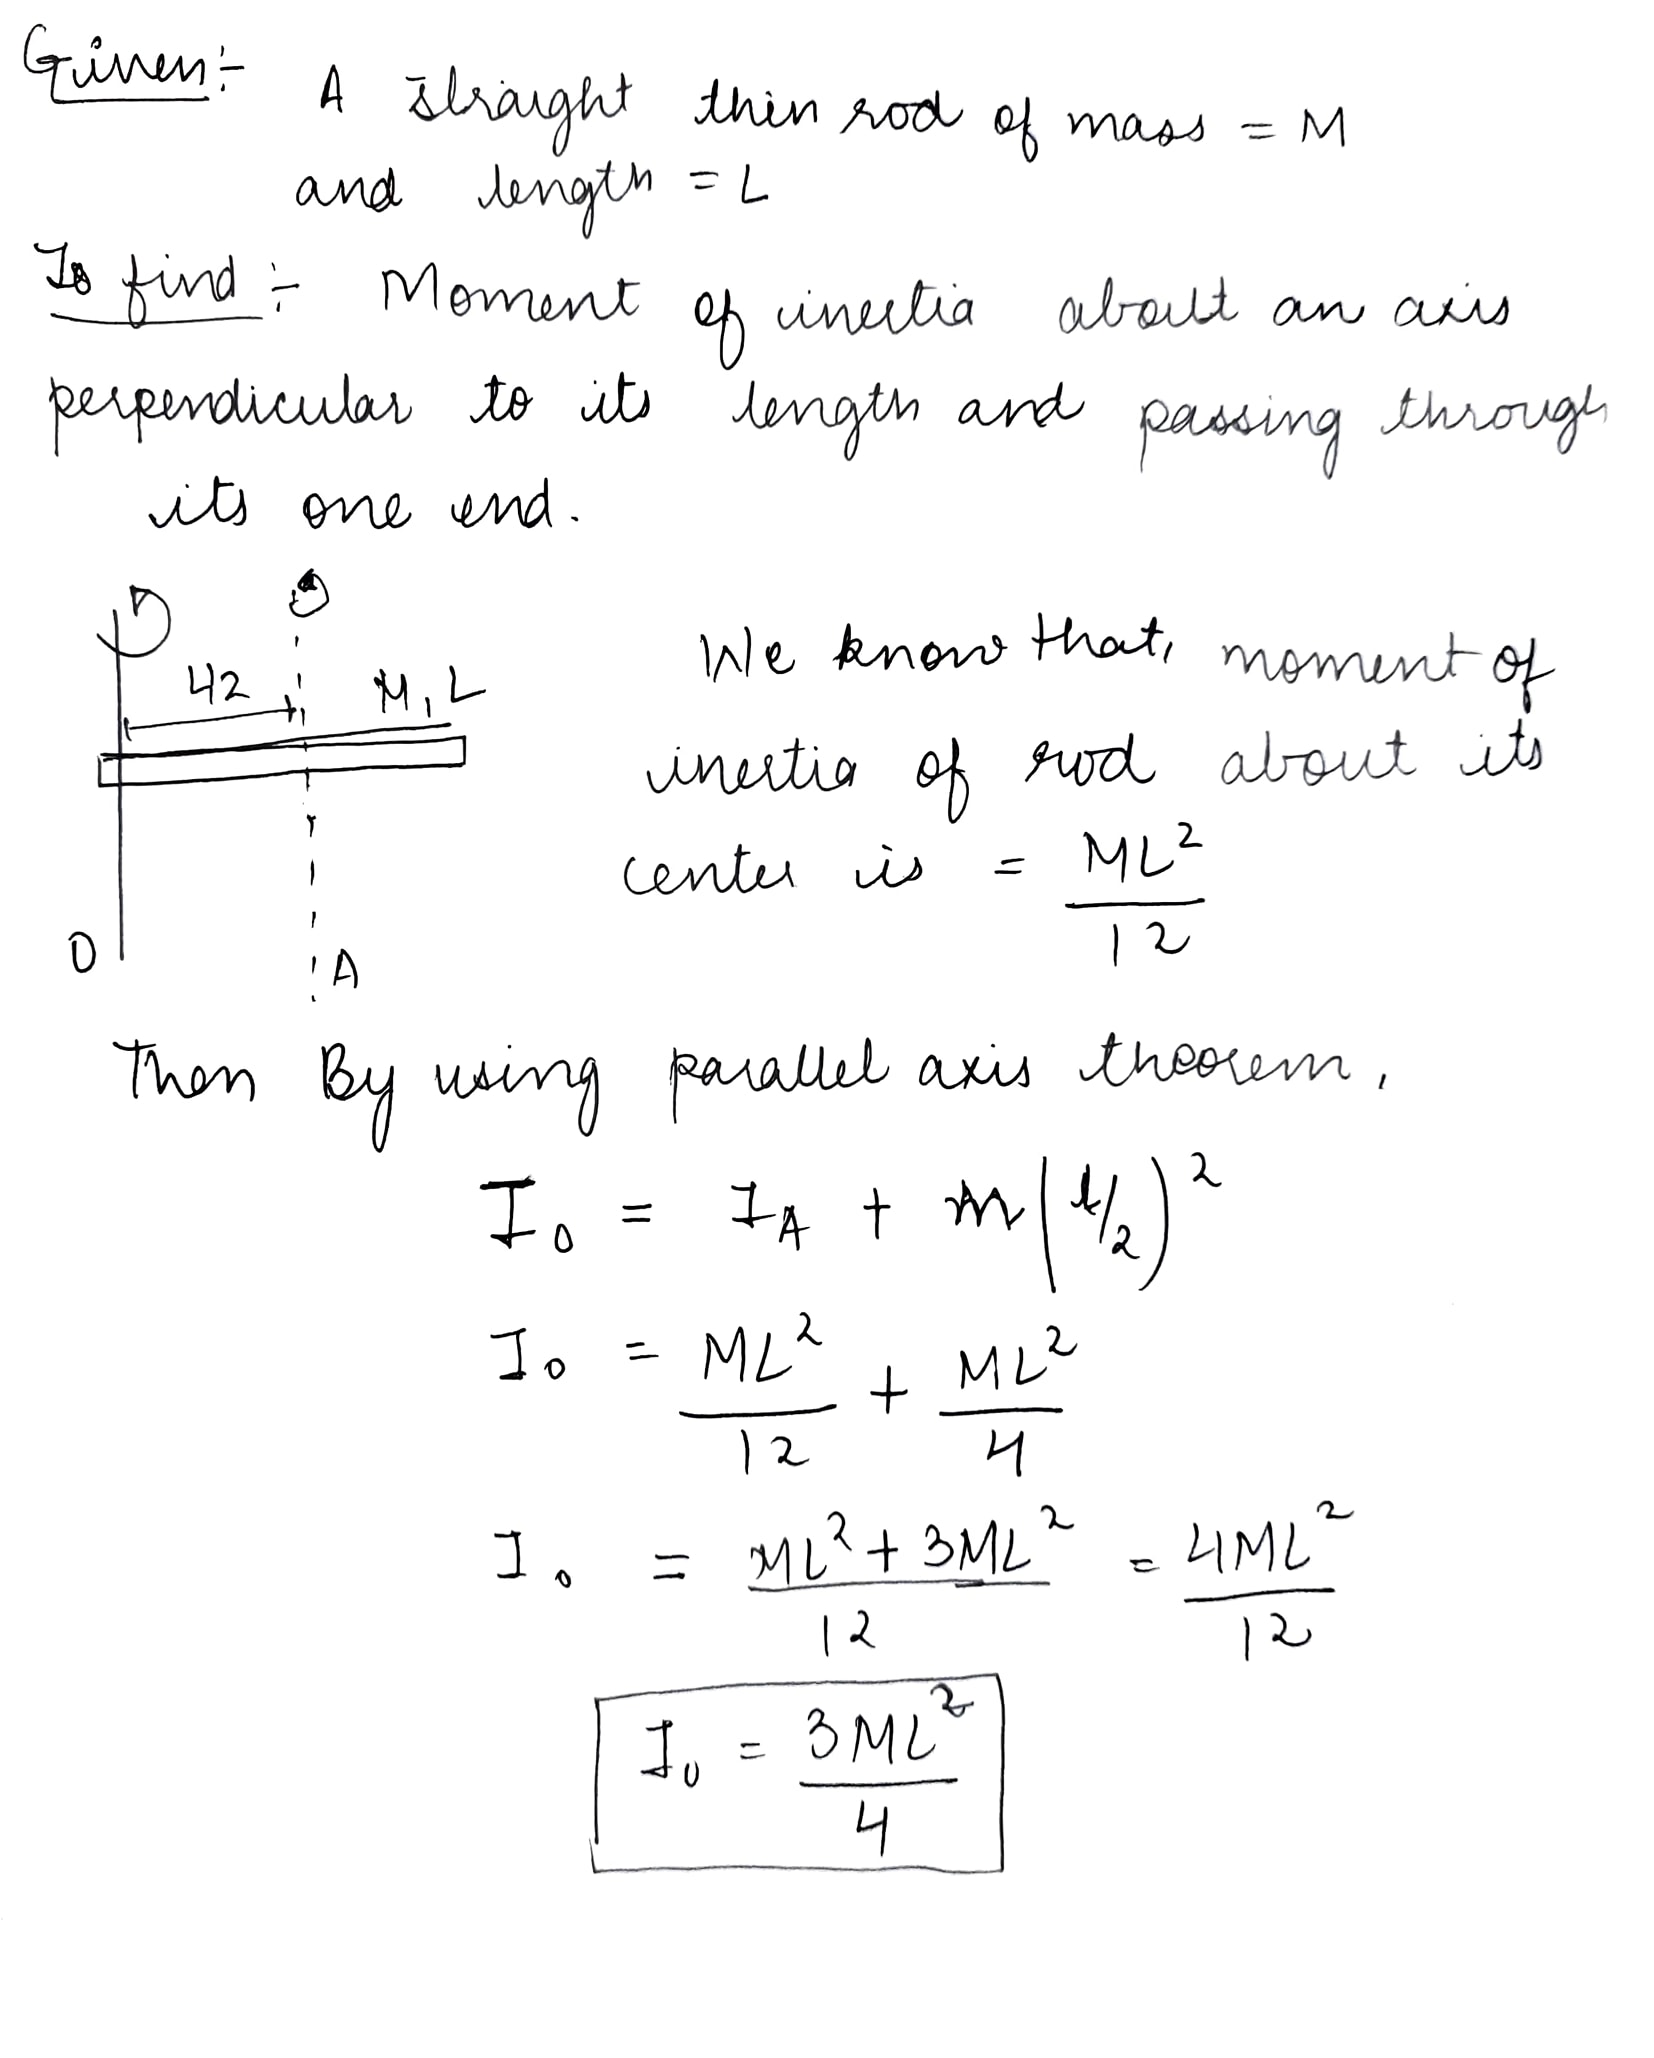 Given:-
A straight thin rod of mass = M
and length = L
To find :- Moment of inertia about an axis
perpendicular to its length and passing through
its one end.
L/2 M, L
We know that, moment of
inertia of rod about its
center is = ML²/12
O
A
Then By using parallel axis theorem,
I₀ = I_A + m(L/2)²
I₀ = ML²/12 + ML²/4
I₀ = ML² + 3ML²/12 = 4ML²/12
I₀ = 3ML²/4